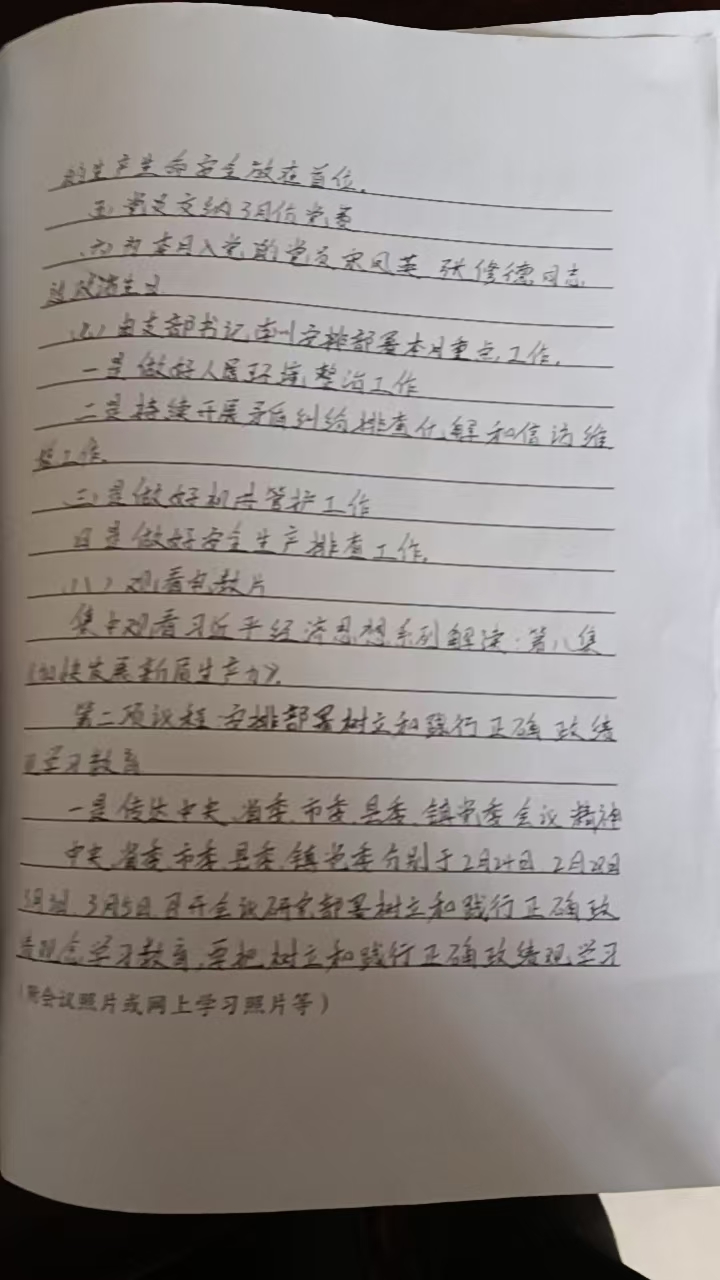 的生产生命安全放在首位。
五、党员交纳3月份党费
(六)为本月入党的党员宋凤英 张修德同志
过政治生日
(七)由支部书记 安排部署本月重点工作。
一是做好人居环境整治工作
二是持续开展矛盾纠纷排查化解和信访维
稳工作。
三是做好机井管护工作
四是做好安全生产排查工作。
(八)观看电教片
集中观看习近平经济思想系列解读:第八集
《加快发展新质生产力》。
第二项议程:安排部署树立和践行正确政绩
观学习教育
一是传达中央、省委、市委、县委、镇党委会议精神
中央、省委、市委、县委、镇党委分别于2月24日、2月28日
3月3日、3月5日召开会议研究部署树立和践行正确政
绩观念学习教育,要把树立和践行正确政绩观学习
(附会议照片或网上学习照片等)